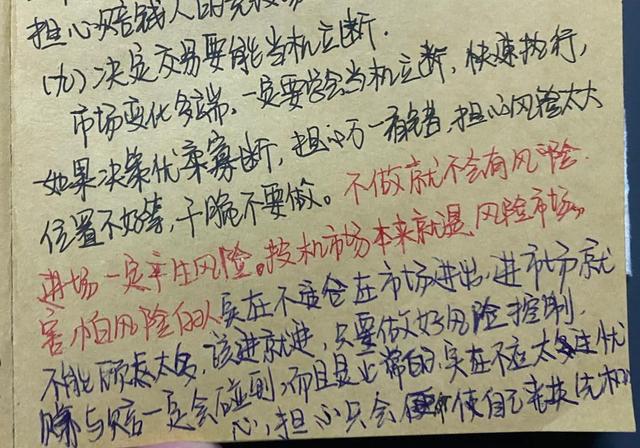 担心赔钱人的竞技场
(九)决定交易要能当机立断.
市场变化多端,一定要学会当机立断,快速执行,
如果决策优柔寡断,担心万一有错,担心风险太大
位置不好等,干脆不要做。不做就不会有风险.
进场一定产生风险。投机市场本来就是风险市场,
害怕风险的人实在不适合在市场进出,进市市就
不能顾虑太多,该进就进,只要做好风险控制.
赚与赔一定会碰到,而且是正常的,实在不应太过忧
心,担心只会使自己丧失先机